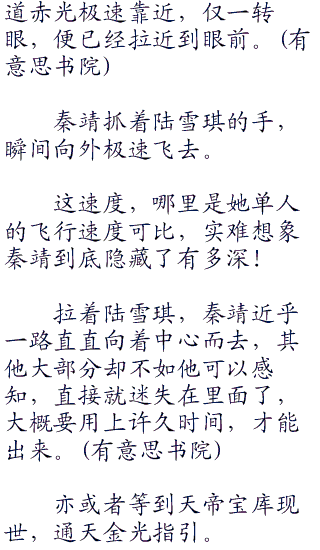 道赤光极速靠近，仅一转
眼，便已经拉近到眼前。(有
意思书院)
秦靖抓着陆雪琪的手，
瞬间向外极速飞去。
这速度，哪里是她单人
的飞行速度可比，实难想象
秦靖到底隐藏了有多深！
拉着陆雪琪，秦靖近乎
一路直直向着中心而去，其
他大部分却不如他可以感
知，直接就迷失在里面了，
大概要用上许久时间，才能
出来。(有意思书院)
亦或者等到天帝宝库现
世，通天金光指引。